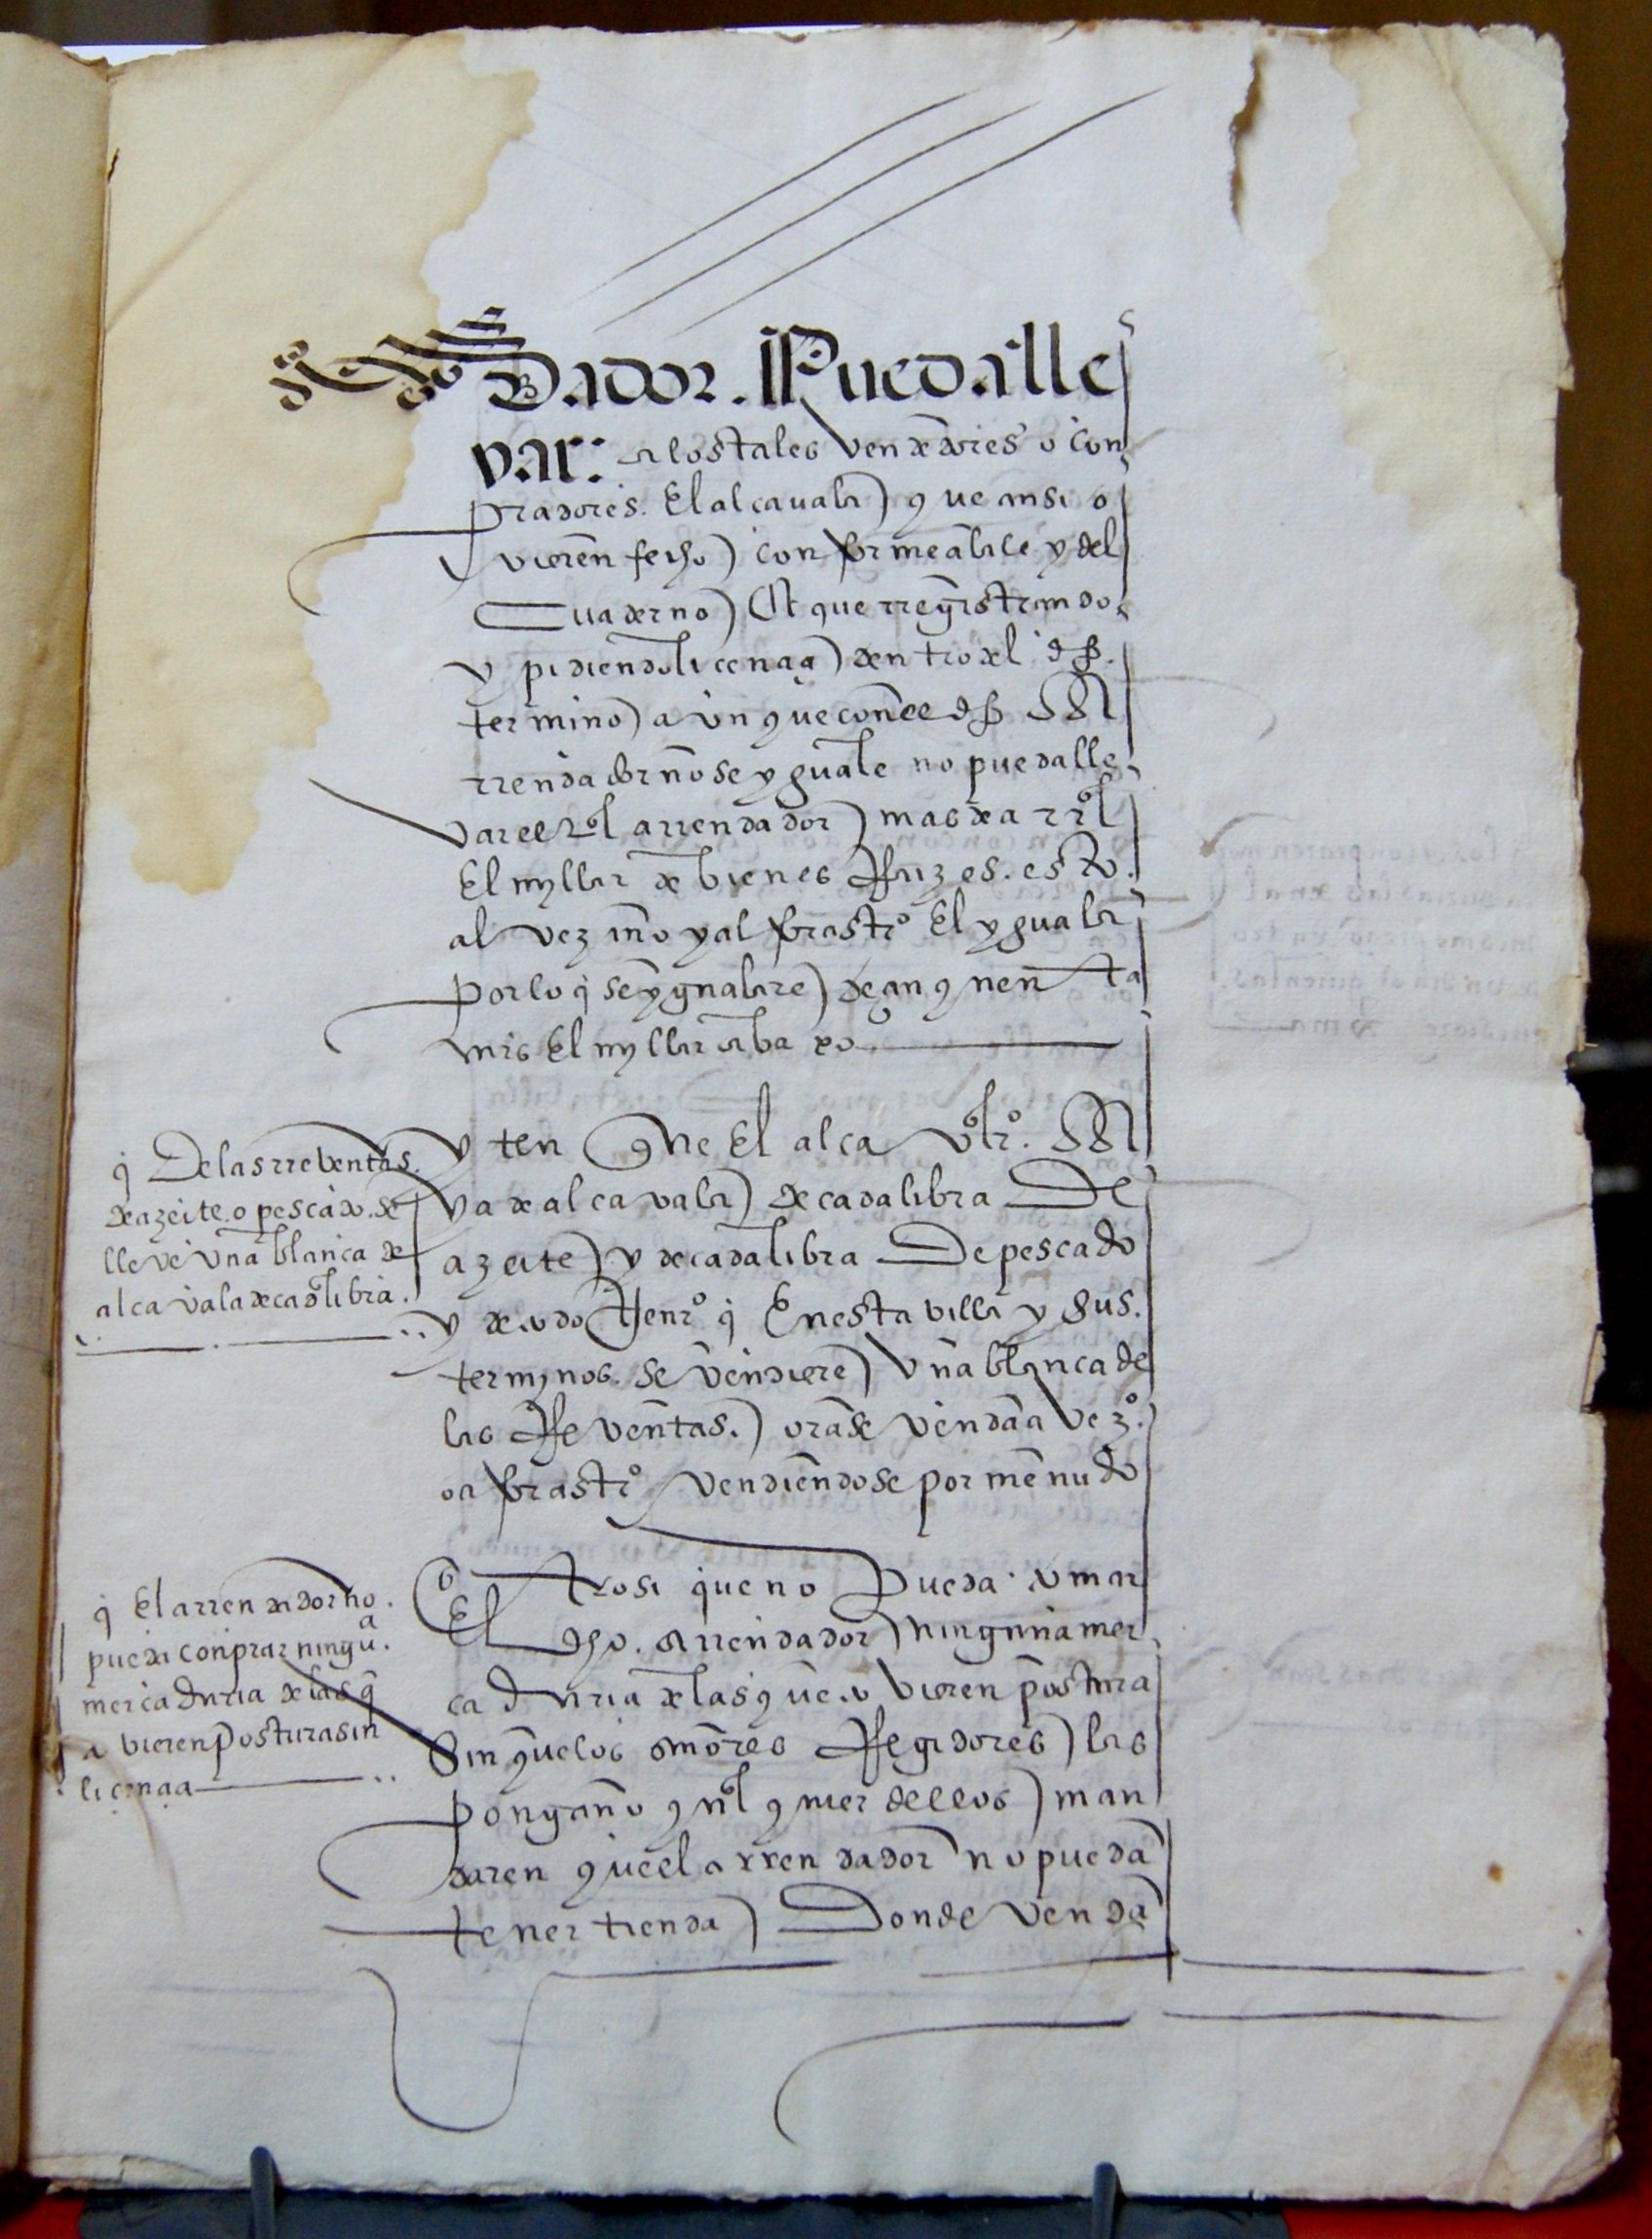 Dador. Puedalle
var: a los tales vendedores o con
pradores. El alcavala que ansi o
vieren fecho conforme a la ley del
cuaderno Et que rregistrando
y pidiendo licencia dentro del dho.
termino aunque con el dho
rrendador no se yguale no pueda lle
var el tal arrendador mas de a
El myllar de bienes Rayzes. esto.
al vezino y al forastro El yguala
por lo q se ygualare de cinquenta
mrs El myllar abaxo
yten que El alcavalro.
va de alcavala de cada libra De
azeite y de cada libra De pescado
y de todo genro q En esta villa y sus.
termynos. se vendiere vna blanca de
las Reventas. ora se venda a vezo.
o a forastro vendiendose por menudo
q De las rreventas.
de azeite. o pescado. se
lleve vna blanca de
alcavala de cada libra.
Otrosi que no Pueda tomar
El dho. arrendador ninguna mer
caduria de las que tovieren postura
Sin que los señores Regidores las
pongan o qual quier dellos man
daren que el arrendador no pueda
tener tienda Donde venda
q El arrendador no.
pueda conprar ningua.
mercaduria de las q
tovieren postura sin
licencia